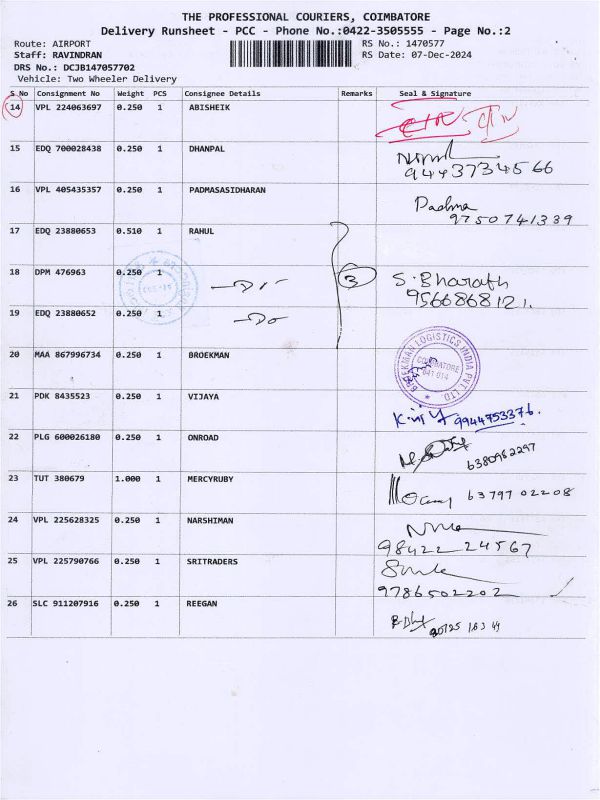 THE PROFESSIONAL COURIERS, COIMBATORE
Delivery Runsheet - PCC - Phone No.:0422-3505555 - Page No.:2
Route: AIRPORT RS No.: 1470577
Staff: RAVINDRAN RS Date: 07-Dec-2024
DRS No.: DCJB147057702
Vehicle: Two Wheeler Delivery
S No Consignment No Weight PCS Consignee Details Remarks Seal & Signature
14 VPL 224063697 0.250 1 ABISHEIK
15 EDQ 700028438 0.250 1 DHANPAL
9443734566
16 VPL 405435357 0.250 1 PADMASASIDHARAN
Padma
9750741339
17 EDQ 23880653 0.510 1 RAHUL
18 DPM 476963 0.250 1 3 S. Bharath
9566868121.
19 EDQ 23880652 0.250 1 Do
20 MAA 867996734 0.250 1 BROEKMAN
BROEKMAN LOGISTICS INDIA PVT. LTD.
COIMBATORE
641 014
21 PDK 8435523 0.250 1 VIJAYA
9944753376.
22 PLG 600026180 0.250 1 ONROAD
6380982297
23 TUT 380679 1.000 1 MERCYRUBY
63797 02208
24 VPL 225628325 0.250 1 NARSHIMAN
98422 24567
25 VPL 225790766 0.250 1 SRITRADERS
9786502202
26 SLC 911207916 0.250 1 REEGAN